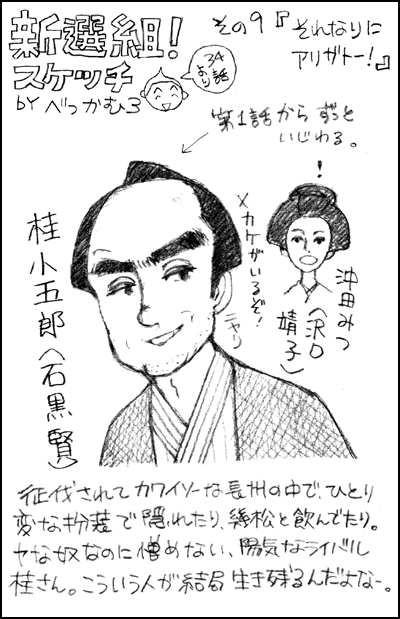 新選組!
スケッチ
BY べっかむ3
34話より
その9『それなりに
アリガトー!』
第1話から ずっと
いじわる。
!
メカケがいるぞ!
ニヤリ
桂小五郎(石黒賢)
沖田みつ
(沢口靖子)
征伐されてカワイソーな長州の中で、ひとり
変な扮装で隠れたり、幾松と飲んでたり。
ヤな奴なのに憎めない、陽気なライバル
桂さん。こういう人が結局生き残るんだよなー。